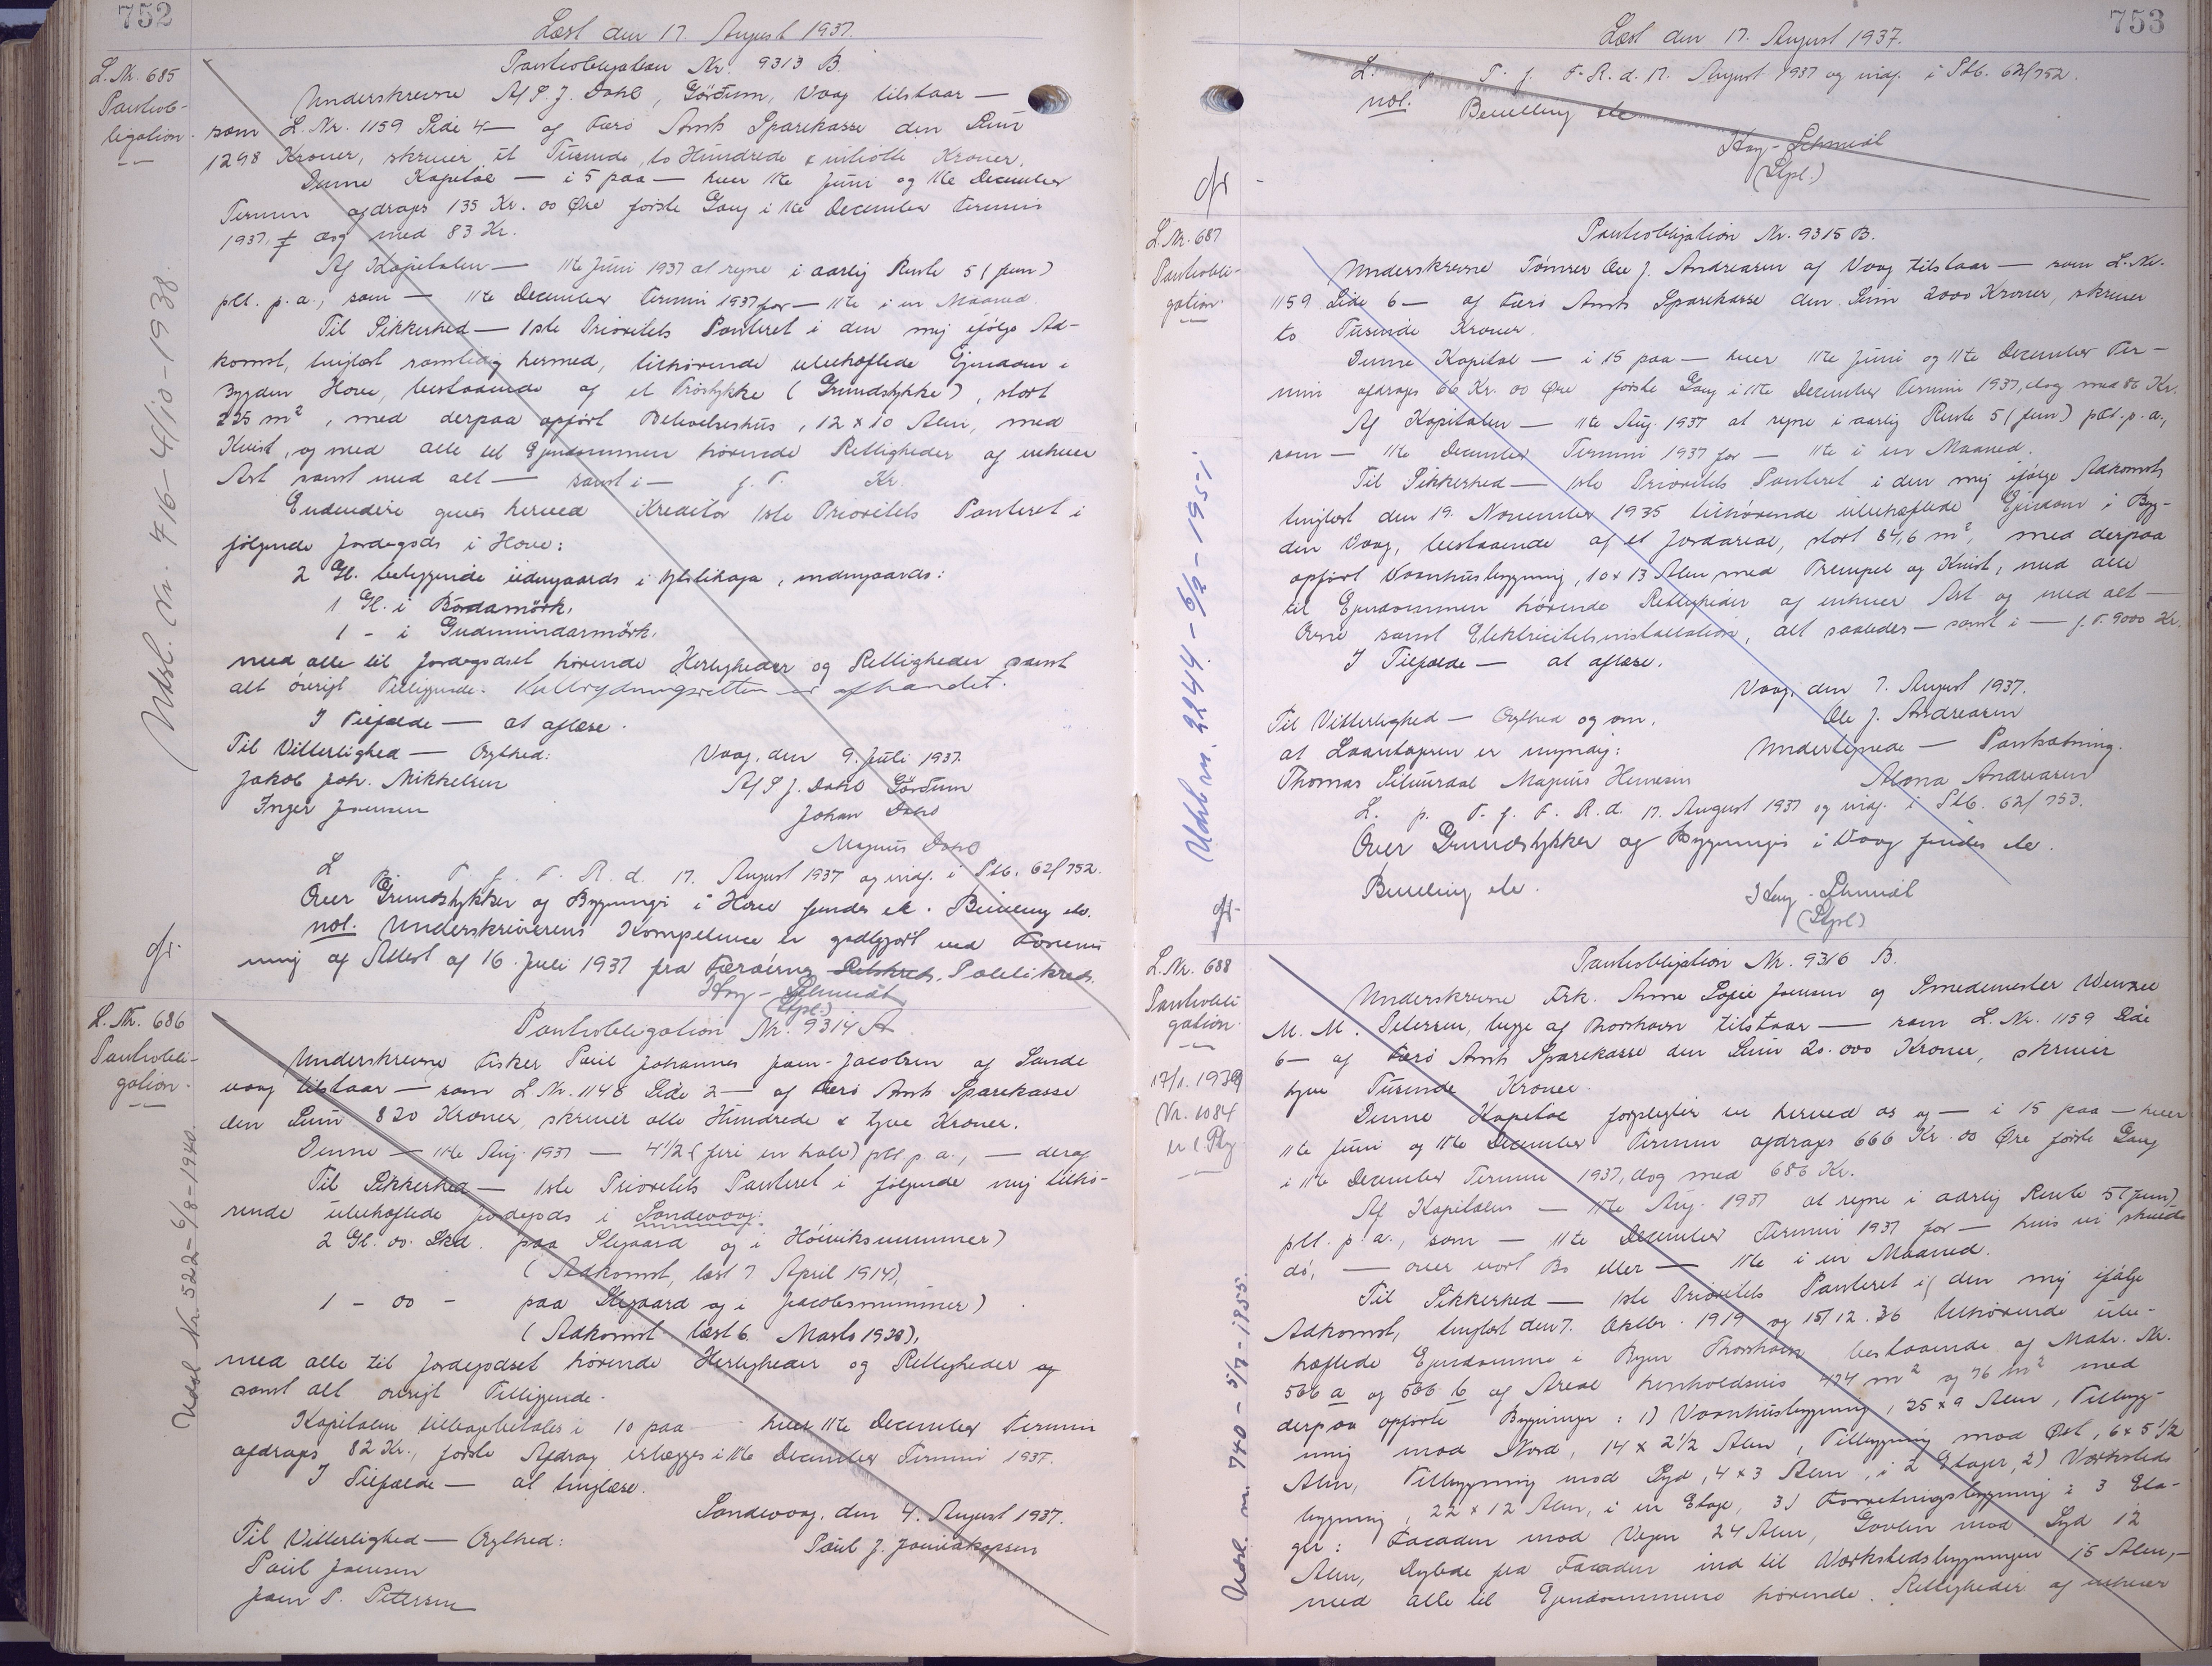 752
Læst den 17. August 1937.
L. Nr. 685
Pantob-
ligation.
Pantobligation Nr. 9313 B.
Underskrevne A/S. J. Dahl, Gördum, Vaag tilstaar —
som L. Nr. 1159 Side 4 — af Færø Amts Sparekasse den Sum
1298 Kroner, skriver et Tusinde, to Hundrede & otte Kroner.
Denne Kapital — i 5 paa — hver 11te Juni og 11te December
Termin afdrages 135 Kr. 00 Øre første Gang i 11te December Termin
1937, dog med 83 Kr.
Af Kapitalen — 11te Juni 1937 at regne i aarlig Rente 5 (fem)
pCt. p. a., som — 11te December Termin 1937 for — 11te i en Maaned.
Til Sikkerhed — 1ste Prioritets Panteret i den mig ifølge Ad-
komst, tinglæst samtidig hermed, tilhørende ubehæftede Ejendom i
Bygden Hove, bestaaende af et Trøstykke (Grundstykke), stort
225 m², med derpaa opført Beboelseshus, 12 x 10 Alen, med
Kvist, og med alle til Ejendommen hørende Rettigheder af enhver
Art samt med alt — samt i — f. T. Kr.
Endvidere gives herved Kreditor 1ste Prioritets Panteret i
følgende Jordegods i Hove:
2 Gl. beliggende udengaards i , indengaards:
1 Gl. i Bördamörk,
1 - i Gudmundarmörk,
med alle til Jordegodset hørende Herligheder og Rettigheder samt
alt øvrigt Tilliggende. Kulbrydningsretten er afhændet.
I Tilfælde — at aflæse.
Til Vitterlighed — Ægthed:
Vaag, den 9. Juli 1937.
Jakob Joh. Mikkelsen
A/S J. Dahl Gördum
Inger Joensen
Johan Dahl
Magnus Dahl
L. p. T. f. F. R. d. 17. August 1937 og indf. i Ptb. 62/752.
Over Grundstykker og Bygninger i Hove findes ek. Bevilling etc.
not. Underskriverens Kompetence er godtgjort ved Forevis-
ning af Attest af 16. Juli 1937 fra Færøernes Retskreds. Politikreds.
Høy-Schmidt
(Stpl.)
Udsl. Nr. 716 - 4/10 - 1938.
L. Nr. 686
Pantobli-
gation.
Pantobligation Nr. 9314 A
Underskrevne Fisker Poul Johannes Joen-Jacobsen af Sande
vaag tilstaar — som L. Nr. 1148 Side 2 — af Færø Amts Sparekasse
den Sum 820 Kroner, skriver otte Hundrede & tyve Kroner.
Denne — 11te Aug. 1937 — 4 1/2 (fire en halv) pCt. p. a., — deraf
Til Sikkerhed — 1ste Prioritets Panteret i følgende mig tilhø-
rende ubehæftede Jordegods i Sandevaag:
2 Gl. 00 Skd. paa Slegaard og i Høiviksnummer)
(Adkomst, læst 7 April 1914),
1 - 00 - paa Slegaard og i Jacobsnummer)
(Adkomst læst 6. Marts 1928),
med alle til Jordegodset hørende Herligheder og Rettigheder og
samt alt øvrigt Tilliggende.
Kapitalen tilbagebetales i 10 paa hver 11te December Termin
afdrages 82 Kr., første Afdrag erlægges i 11te December Termin 1937.
I Tilfælde — at tinglæse.
Sandevaag, den 4. August 1937.
Til Vitterlighed — Ægthed:
Poul J. Joensen
Poul Joensen
Joen P. Petersen
Udsl. Nr. 522 - 6/8 - 1940.
753
Læst den 17. August 1937.
L. p. T. f. F. R. d. 17. August 1937 og indf. i Ptb. 62/752.
not. Bevilling etc
Høy-Schmidt
(Stpl.)
L. Nr. 687
Pantobli-
gation.
Pantobligation Nr. 9315 B.
Underskrevne Tømrer Ole J. Andreasen af Vaag tilstaar — som L. Nr.
1159 Side 6 — af Færø Amts Sparekasse den Sum 2000 Kroner, skriver
to Tusinde Kroner.
Denne Kapital — i 15 paa — hver 11te Juni og 11te December Ter-
min afdrages 66 Kr. 00 Øre første Gang i 11te December Termin 1937, dog med 86 Kr.
Af Kapitalen — 11te Aug. 1937 at regne i aarlig Rente 5 (fem) pCt. p. a.,
som — 11te December Termin 1937 for — 11te i en Maaned.
Til Sikkerhed — 1ste Prioritets Panteret i den mig ifølge Adkomst,
tinglæst den 19. November 1935 tilhørende ubehæftede Ejendom i Byg-
den Vaag, bestaaende af et Jordareal, stort 84,6 m², med derpaa
opført Vaanhusbygning, 10 x 13 Alen med Trempel og Kvist, med alle
til Ejendommen hørende Rettigheder af enhver Art og med alt —
Ovne samt Elektricitetsinstallation, alt saaledes — samt i — f. T. 9000 Kr.
I Tilfælde — at aflæse.
Vaag, den 7. August 1937.
Til Vitterlighed — Ægthed og om,
Ole J. Andreasen
at Laantageren er myndig:
Undertegnede — Pantsætning.
Thomas Magnus
Andreasen
L. p. T. f. F. R. d. 17. August 1937 og indf. i Ptb. 62/753.
Over Grundstykker og Bygninger i Vaag findes etc.
Bevilling etc.
Høy-Schmidt
(Stpl.)
Udsl. nr. 2244 - 6/2 - 1951.
L. Nr. 688
Pantobli-
gation.
17/1. 1939
Nr. 1084
Pantobligation Nr. 9316 B.
Underskrevne Frk. Anne Sofie Joensen og Smedemester Wenzel
M. M. Petersen, begge af Thorshavn tilstaar — som L. Nr. 1159 Side
6 — af Færø Amts Sparekasse den Sum 20.000 Kroner, skriver
tyve Tusinde Kroner.
Denne Kapital forpligter vi herved os og — i 15 paa — hver
11te Juni og 11te December Termin afdrages 666 Kr. 00 Øre første Gang
i 11te December Termin 1937, dog med 686 Kr.
Af Kapitalen — 11te Aug. 1937 at regne i aarlig Rente 5 (fem)
pCt. p. a., som — 11te December Termin 1937 for — hvis vi skulde
dø, — over vort Bo eller — 11te i en Maaned.
Til Sikkerhed — 1ste Prioritets Panteret i den mig ifølge
Adkomst, tinglæst den 7. Oktbr. 1919 og 15/12.36 tilhørende ube-
hæftede Ejendomme i Byen Thorshavn bestaaende af Matr. Nr.
506 a og 506 b af Areal henholdsvis 474 m² og 76 m² med
derpaa opførte Bygninger: 1) Vaanhusbygning, 25 x 9 Alen, Tilbyg-
ning mod Nord, 14 x 2 1/2 Alen, Tilbygning mod Øst, 6 x 5 1/2
Alen, Tilbygning mod Syd, 4 x 3 Alen, i 2 Etager, 2) Værksteds
bygning, 22 x 12 Alen, i en Etage, 3) Forretningsbygning i 3 Eta-
ger: Facaden mod Vejen 24 Alen, Gavlen mod Syd 12
Alen, Dybde fra Facaden ind til Værkstedsbygningen 15 Alen, —
med alle til Ejendommene hørende Rettigheder af enhver
Udsl. nr. 740 - 5/7 - 1955.